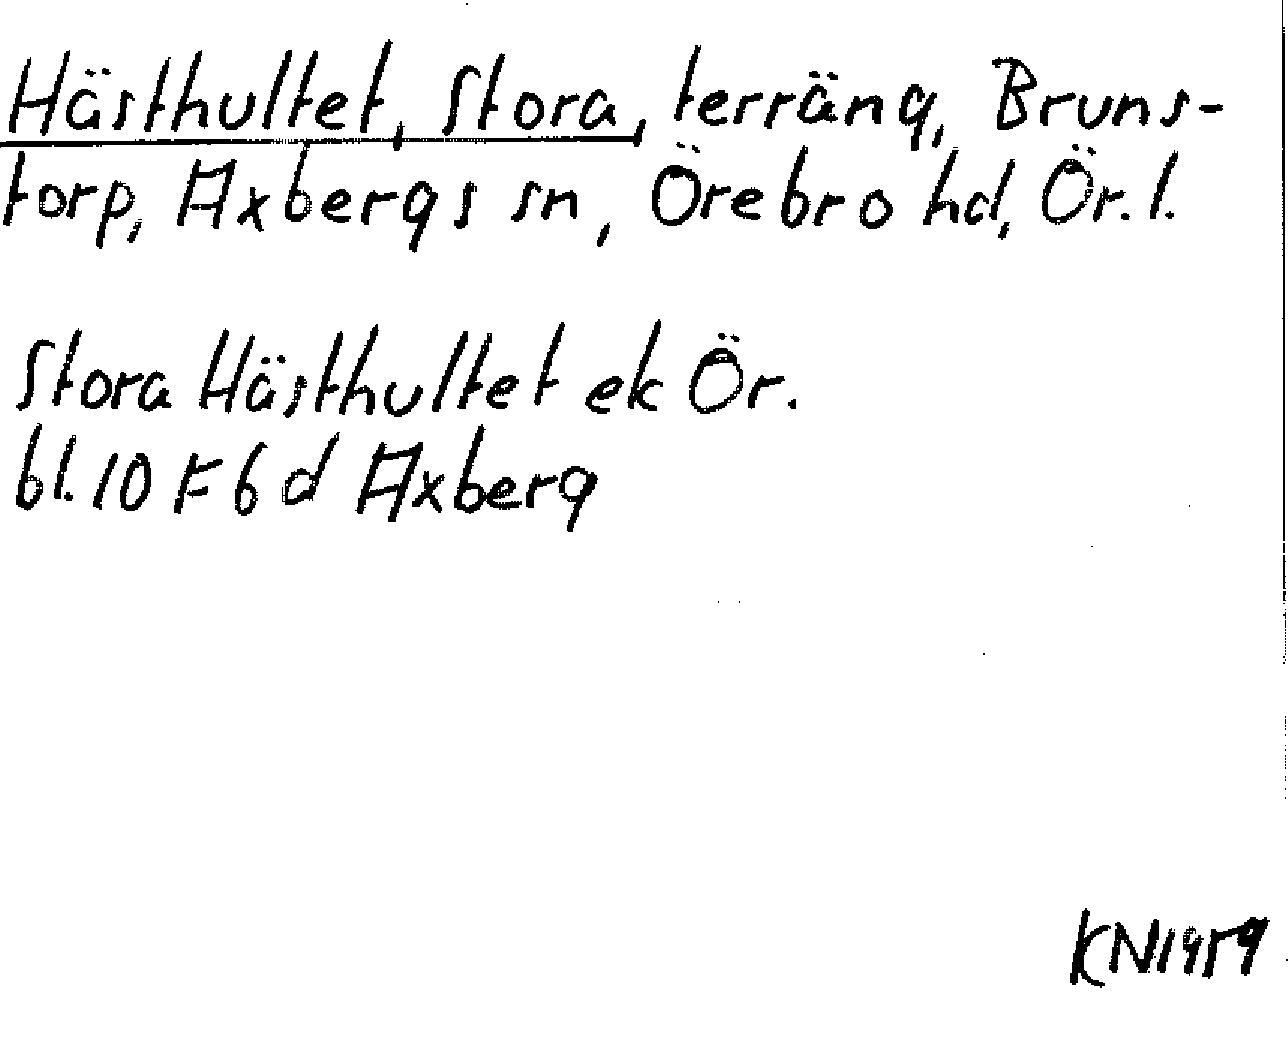 Hästhultet, Stora, terräng, Bruns-
torp, Axbergs sn, Örebro hd, Ör. l.
Stora Hästhultet ek Ör.
bl. 10 F 6 d Axberg
KN1959